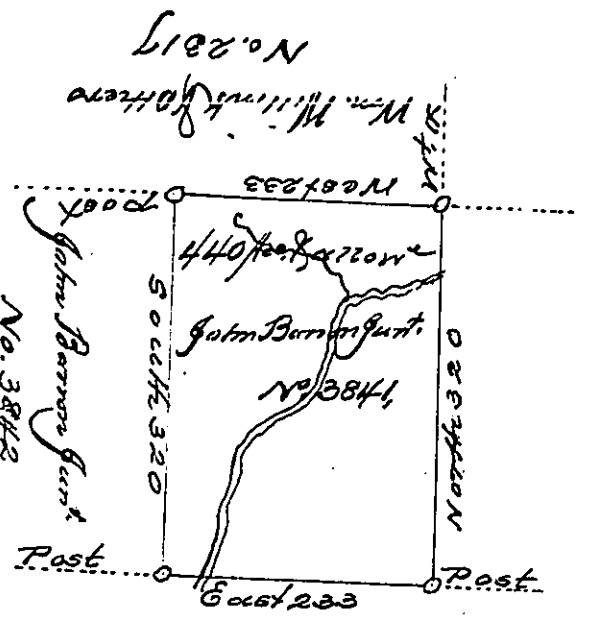 No. 2317
Wm. Willink & others
West 233
Post
440
John Barron Junr.
No. 3841,
South 320
North 320
John Barron Junr.
No. 3842
Post
East 233
Post